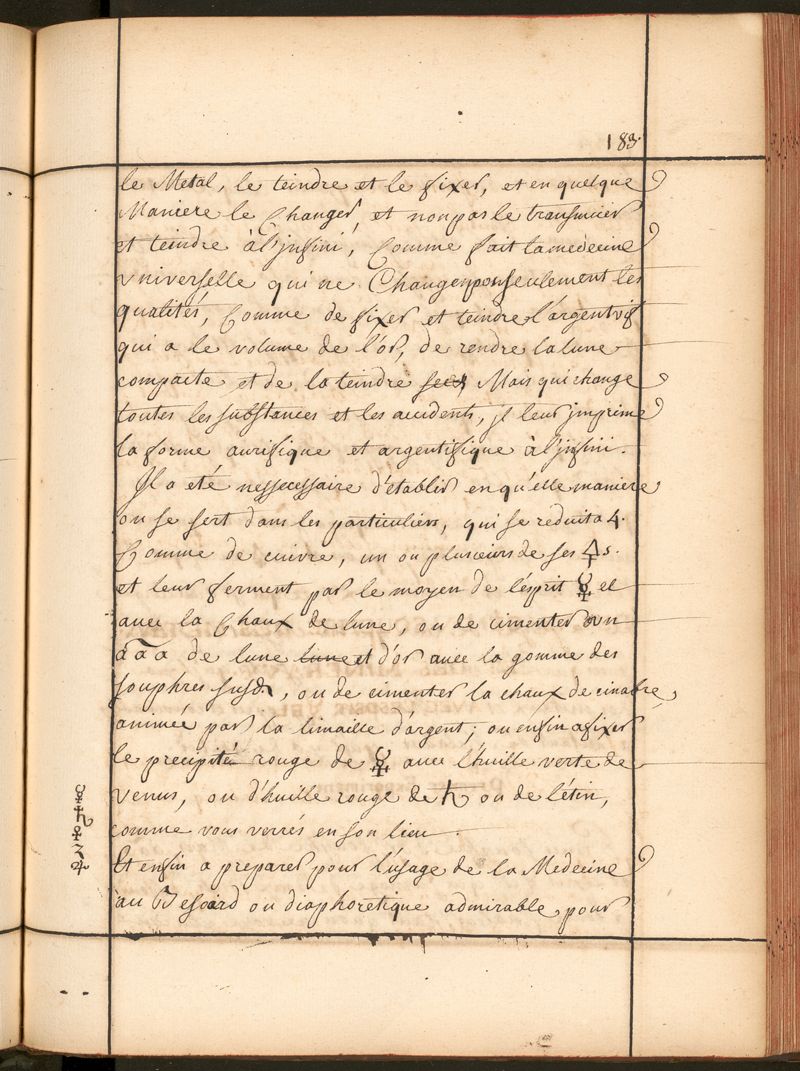 183.
le Metal, le teindre et le fixer, et en quelque
Maniere le Changer, et non pas le transmuer
et teindre à l'jnfini, Comme fait la medecine
vniverselle qui ne Change non seulement les
qualités, Comme de fixer et teindre l'argent vif
qui a le volume de l'or, de rendre la lune
compacte et de la teindre Mais qui change
toutes les substances et les accidents, jl leur jmprime
la forme aurifique et argentifique à l'jnfini.
Jl a eté nessessaire d'établir en qu'elle maniere
on se sert dans les particuliers, qui se reduit a 4.
Comme de cuivre, un ou plusieurs de ses 🜍s.
et leur ferment par le moyen de l'ésprit ☿ el
avec la Chaux de lune, ou de cimenter un
ããã de lune lune et d'or avec la gomme des
souphres susd., ou de cimenter la chaux de cinabre
animée par la limaille d'argent; ou enfin a fixer
le precipité rouge de ☿ avec l'huille verte de
venus, ou d'huille rouge de ♄ ou de l'étin,
comme vous verrés en son lieu.
☿ ♄ ♀ ♃
Et enfin a preparer pour l'usage de la Medecine
au Besoard ou diaphoretique admirable pour